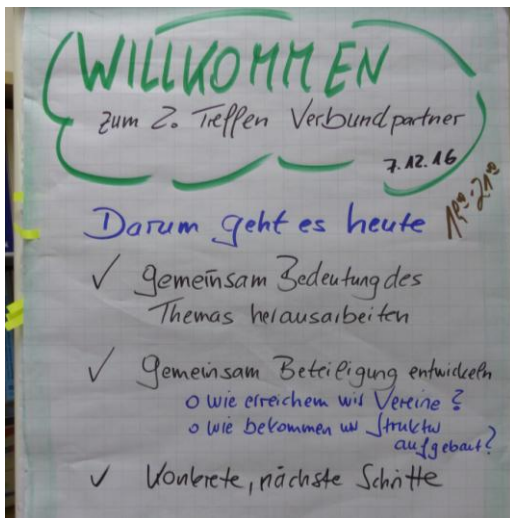 WILLKOMMEN
zum 2. Treffen Verbundpartner
7.12.16
Darum geht es heute
19⁰⁰-21⁰⁰
✓ Gemeinsam Bedeutung des
Themas herausarbeiten
✓ Gemeinsam Beteiligung entwickeln
o wie erreichem wir Vereine?
o wie bekommen wir Struktur
aufgebaut?
✓ Konkrete, nächste Schritte